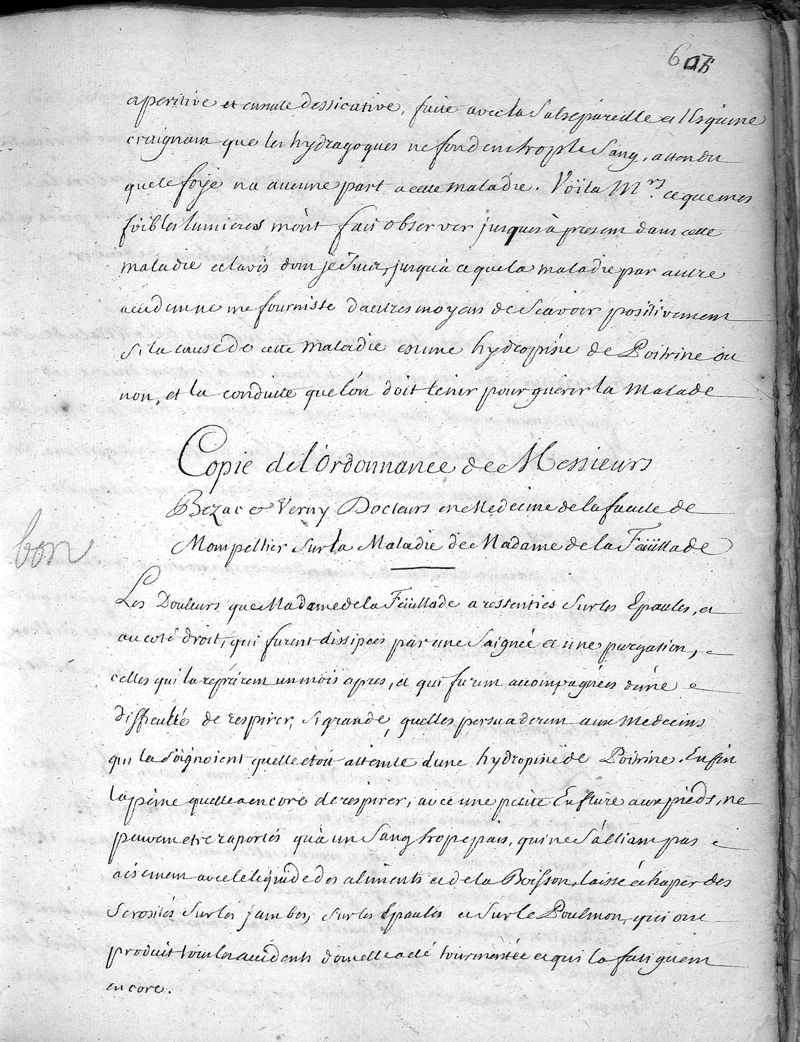 aperitive et ensuite dessicative, faite avec la Salsepareille et l'Esquine
craignant que les hydragoques ne fondent trop le Sang, attendu
que le foÿe na aucune part a cette maladie. Voila Mrs. ce que mes
foibles lumieres m'ont fait observer jusques à present dans cette
maladie et l'avis dont je Suis, jusqu'a ce que la maladie par autre
accident ne me fournisse d'autres moyens de Scavoir positivement
Si la cause de cette maladie est une hydropisie de Poitrine ou
non, et la conduitte que l'on doit tenir pour guérir la Malade
Copie de l'Ordonnance de Messieurs
Bezac & Verny Docteurs en Medecine de la faculté de
Mompellier Sur la Maladie de Madame de la Feüillade
bon
Les Douleurs que Madame de la Feüillade a ressenties Sur les Epaules, et
au coté droit, qui furent dissipées par une Saignée et une purgation,
celles qui la reprirent un mois apres, et qui furent accompagnées d'une
difficulté de respirer, Si grande, quelles persuaderent aux Medecins
qui la Soignoient quelle etoit atteinte d'une hydropisie de Poitrine. Enfin
la peine quelle a encore de respirer, avec une petite Enflure aux pieds, ne
peuvent etre raportés qu'à un Sang trop epais, qui ne S'alliant pas
aisement avec le liquide des aliments et de la Boisson, laisse échaper des
Serosités Sur les jambes, Sur les Epaules et Sur le Poulmon, qui ont
produit tous les accidents dont elle a eté tourmentée et qui la fatiguent
encore.